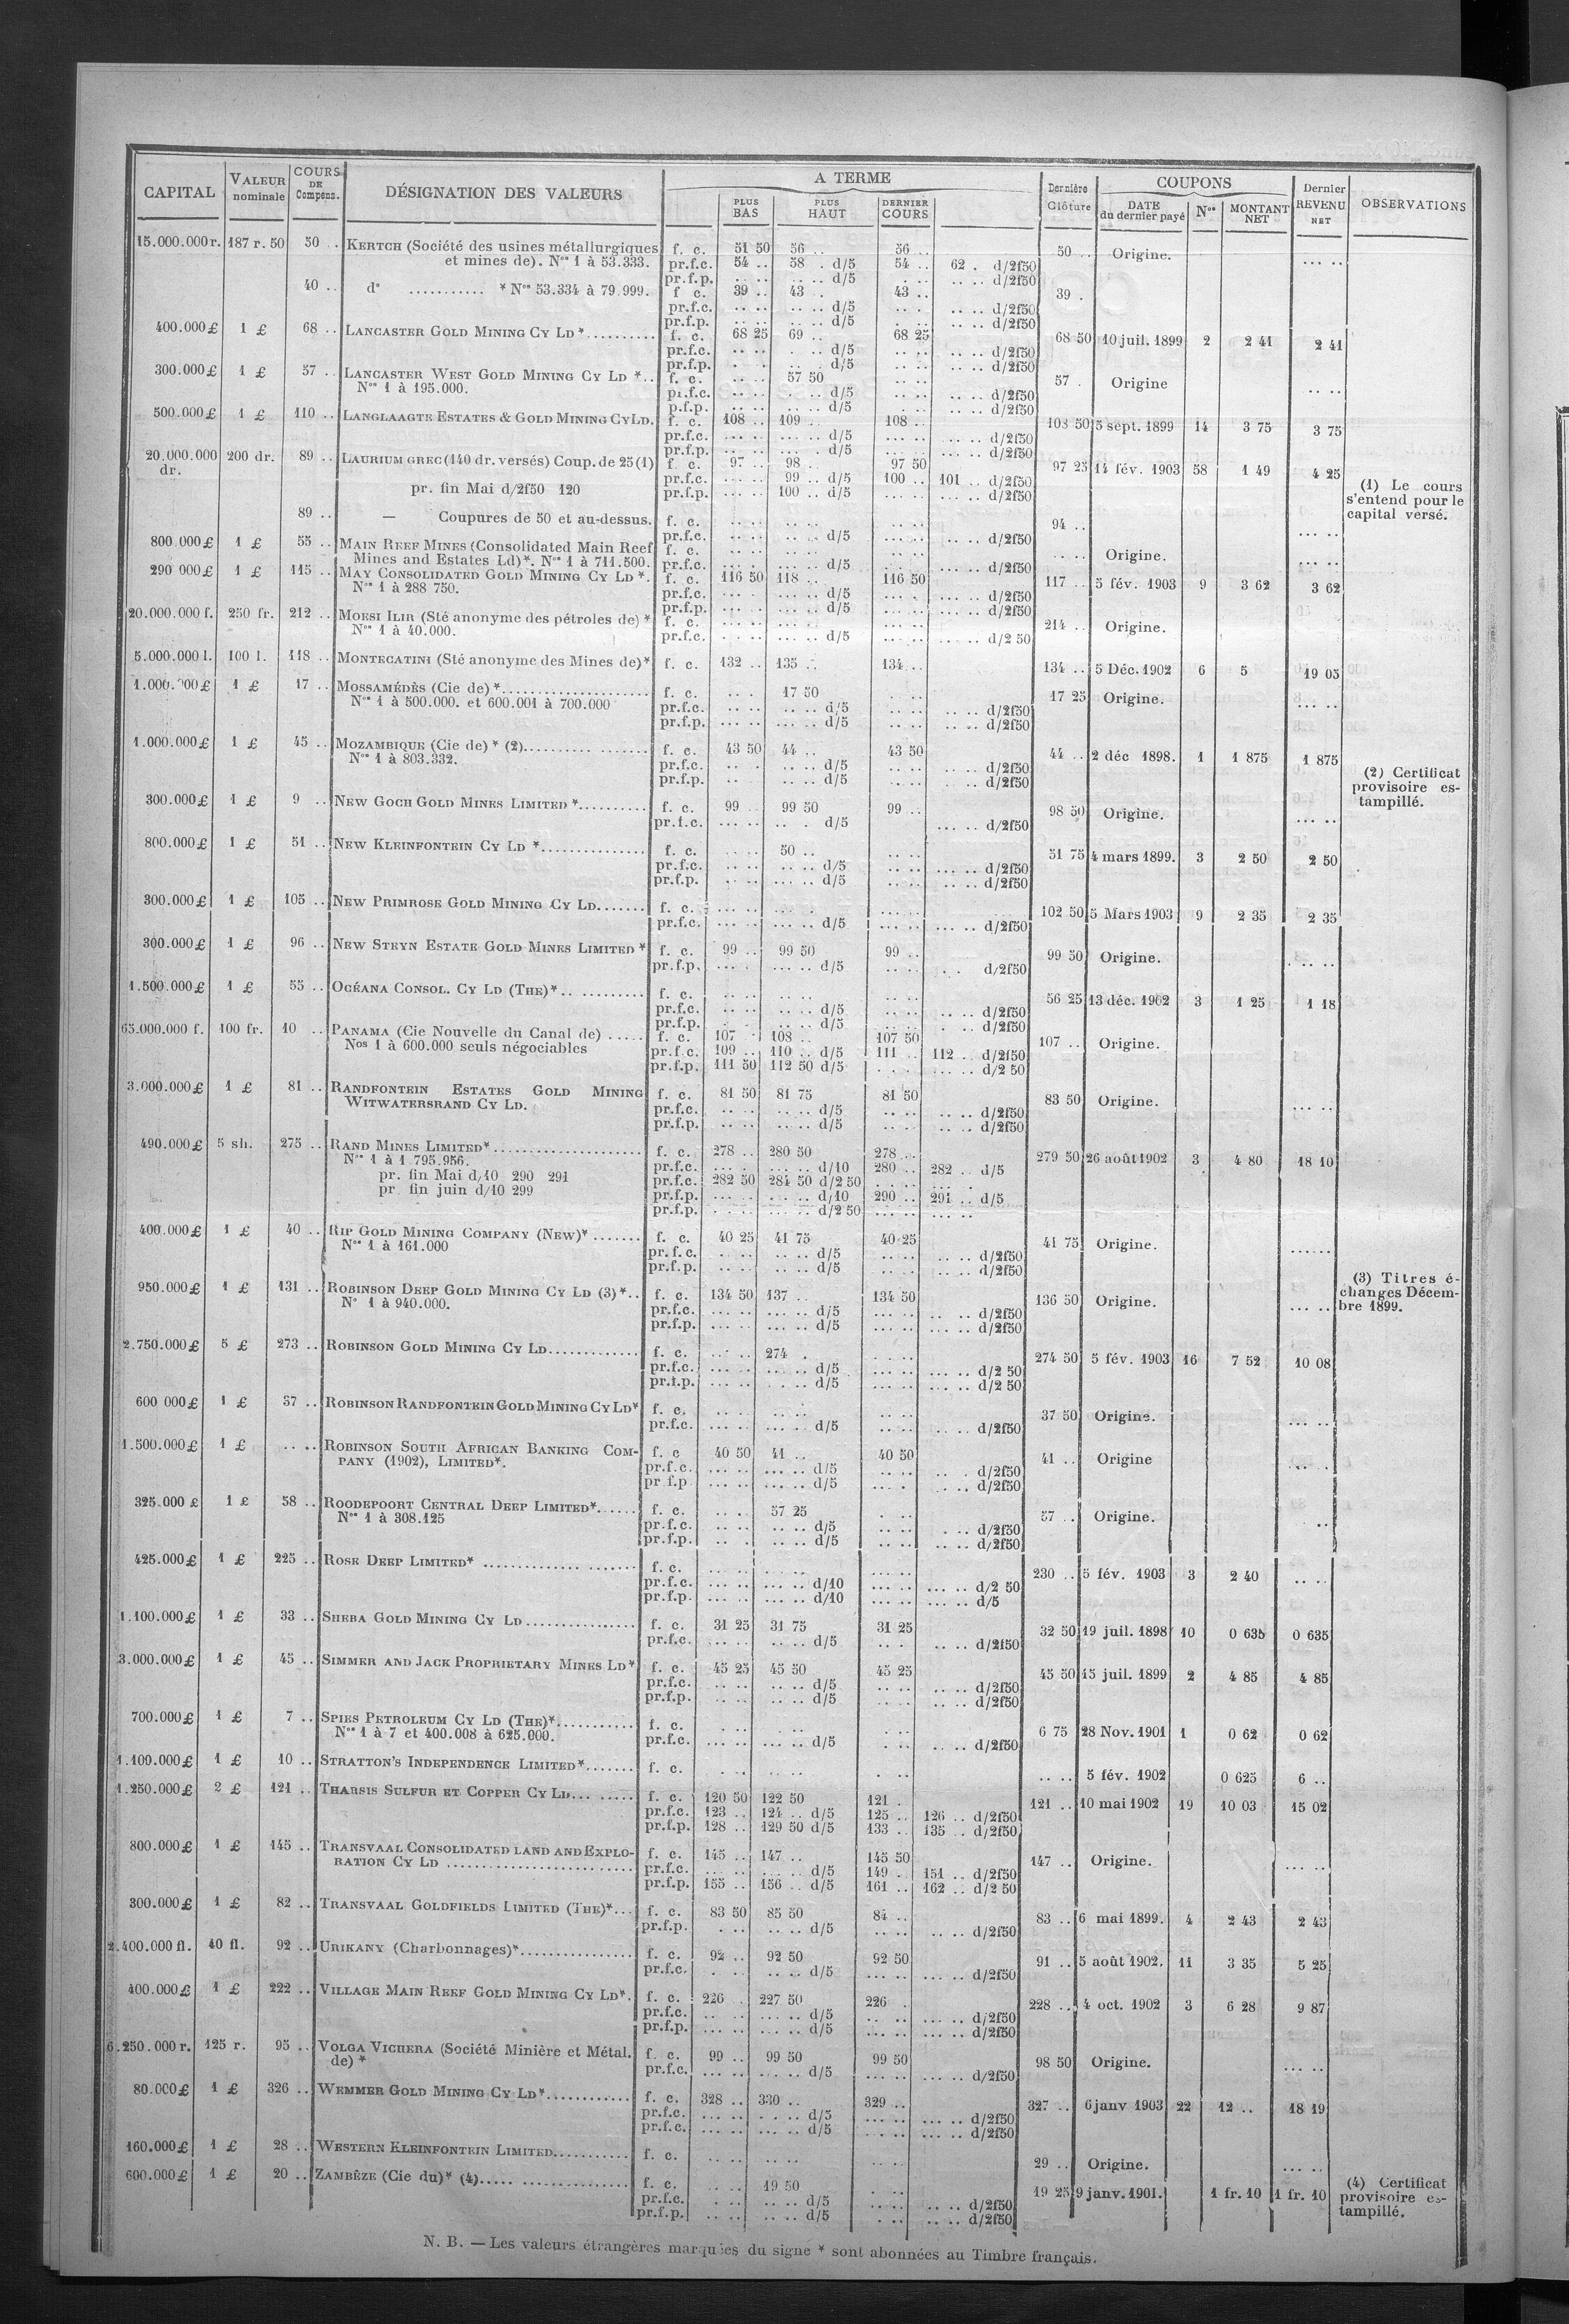 CAPITAL VALEUR nominale COURS DE Compens. DÉSIGNATION DES VALEURS A TERME PLUS BAS PLUS HAUT DERNIER COURS Dernière Clôture COUPONS DATE du dernier payé Nos MONTANT NET Dernier REVENU NET OBSERVATIONS
15.000.000 r. 187 r. 50 50 .. KERTCH (Société des usines métallurgiques f. c. 51 50 56 .. 56 .. 50 .. Origine. .... ..
et mines de). Nos 1 à 53.333. pr.f.c. 54 .. 58 . d/5 54 .. 62 . d/2f50
pr.f.p. .. .. .. .. d/5 . .. .. .. d/2f50
40 .. do ........... * Nos 53.334 à 79.999. f c. 39 .. 43 . 43 .. 39 .
pr.f.c. .. .. .. .. d/5 .. . .. .. d/2f50
pr.f.p. .. .. .. .. d/5 . .. .. .. d/2f50
400.000 £ 1 £ 68 .. LANCASTER GOLD MINING CY LD * .......... f. c. 68 25 69 .. 68 25 68 50 10 juil. 1899 2 2 41 2 41
pr.f.c. .. .. . .. d/5 .. .. .. .. d/2f50
pr.f.p. . . . .. d/5 .. .. .. .. d/2f50
300.000 £ 1 £ 57 .. LANCASTER WEST GOLD MINING CY LD *.. f. c. .. .. 57 50 .. .. 57 . Origine .. ..
Nos 1 à 195.000. pr.f.c. .. .. . .. d/5 .. .. .. .. d/2f50
p.f.p. .. .. .. .. d/5 . .. .. .. d/2f50
500.000 £ 1 £ 110 .. LANGLAAGTE ESTATES & GOLD MINING CY LD. f. c. 108 .. 109 .. 108 .. 108 50 5 sept. 1899 14 3 75 3 75
pr.f.c. ... .. ... .. d/5 ... .. ... .. d/2f50
pr.f.p. ... .. ... . d/5 ... .. ... .. d/2f50
20.000.000 dr. 200 dr. 89 .. LAURIUM GREC (140 dr. versés) Coup. de 25 (1) f. c. 97 .. 98 . 97 50 97 25 14 fév. 1903 58 1 49 4 25
pr.f.c. ... .. 99 .. d/5 100 .. 101 .. d/2f50
pr. fin Mai d/2f50 120 pr.f.p. ... .. 100 .. d/5 ... .. ... .. d/2f50
(1) Le cours
s'entend pour le
capital versé.
89 .. — Coupures de 50 et au-dessus. f. c. .. .. .. .. .. .. 94 .. ... ..
pr.f.c. .. .. .. .. d/5 .. .. .. .. d/2f50
800.000 £ 1 £ 55 .. MAIN REEF MINES (Consolidated Main Reef f. c. .. .. .. .. .. .. .. .. Origine. ... ..
Mines and Estates Ld)*. Nos 1 à 711.500. pr.f.c. ... . ... .. d/5 ... .. ... .. d/2f50
290 000 £ 1 £ 115 .. MAY CONSOLIDATED GOLD MINING CY LD *. f. c. 116 50 118 .. 116 50 117 .. 5 fév. 1903 9 3 62 3 62
Nos 1 à 288 750. pr.f.c. ... . ... .. d/5 ... . ... .. d/2f50
pr.f.p. ... . ... .. d/5 ... .. ... .. d/2f50
20.000.000 f. 250 fr. 212 .. MORSI ILIR (Sté anonyme des pétroles de) * f. c. ... .. ... .. ... .. 214 .. Origine.
Nos 1 à 40.000. pr.f.c. . . .. ... .. d/5 ... .. ... .. d/2 50
5.000.000 l. 100 l. 118 .. MONTECATINI (Sté anonyme des Mines de)* f. c. 132 .. 135 .. 134 .. 134 .. 5 Déc. 1902 6 5 19 05
1.000. 00 £ 1 £ 17 .. MOSSAMÉDÈS (Cie de) * .................... f. c. .. . 17 50 . .. 17 25 Origine. ... ..
Nos 1 à 500.000. et 600.001 à 700.000 pr.f.c. .. .. .. .. d/5 .. .. .. .. d/2f50
pr.f.p. ... .. ... .. d/5 .. .. .. .. d/2f50
1.000.000 £ 1 £ 45 .. MOZAMBIQUE (Cie de) * (2).......... ....... f. c. 43 50 44 .. 43 50 44 .. 2 déc 1898. 1 1 875 1 875
Nos 1 à 803.332. pr.f.c. .. . .. .. d/5 .. .. .. .. d/2f50
pr.f.p. .. .. .. d/5 .. .. . .. d/2f50
(2) Certificat
provisoire es-
tampillé.
300.000 £ 1 £ 9 .. NEW GOCH GOLD MINES LIMITED *.......... f. c. 99 .. 99 50 99 .. 98 50 Origine. ... ..
pr.f.c. ... .. .. . d/5 ... .. d/2f50
800.000 £ 1 £ 51 .. NEW KLEINFONTEIN CY LD *............... f. c. .. .. 50 .. .. .. 51 75 4 mars 1899. 3 2 50 2 50
pr.f.c. .. .. .. .. d/5 .. .. ... .. d/2f50
pr.f.p. .. .. ... .. d/5 .. .. .. .. d/2f50
300.000 £ 1 £ 105 .. NEW PRIMROSE GOLD MINING CY LD....... f. c. ... .. ... . ... .. 102 50 5 Mars 1903 9 2 35 2 35
pr.f.c. ... .. ... .. d/5 ... .. ... .. d/2f50
300.000 £ 1 £ 96 .. NEW STEYN ESTATE GOLD MINES LIMITED * f. c. 99 .. 99 50 99 .. 99 50 Origine. . .. ..
pr.f.p. ... . ... .. d/5 .. .. . . d/2f50
1.500.000 £ 1 £ 55 .. OCÉANA CONSOL. CY LD (THE)* .. .......... f. c. .. .. .. .. .. .. 56 25 13 déc. 1902 3 1 25 1 18
pr.f.c. .. .. .. .. d/5 .. .. .. .. d/2f50
pr.f.p. . . .. .. d/5 .. .. . .. d/2f50
65.000.000 f. 100 fr. 10 .. PANAMA (Cie Nouvelle du Canal de) ..... f. c. 107 . 108 .. 107 50 107 .. Origine.
Nos 1 à 600.000 seuls négociables pr.f.c. 109 .. 110 .. d/5 111 .. 112 .. d/2f50
pr.f.p. 111 50 112 50 d/5 . . . ... .. d/2 50
3.000.000 £ 1 £ 81 .. RANDFONTEIN ESTATES GOLD MINING f. c. 81 50 81 75 81 50 83 50 Origine. ... ..
WITWATERSRAND CY LD. pr.f.c. .. .. .. .. d/5 .. .. .. .. d/2f50
pr.f.p. .. .. .. .. d/5 .. .. .. .. d/2f50
490.000 £ 5 sh. 275 .. RAND MINES LIMITED* ...................... f. c. 278 .. 280 50 278 .. 279 50 26 août 1902 3 4 80 18 10
Nos 1 à 1 795.956. pr.f.c. ... . ... .. d/10 280 .. 282 .. d/5
pr. fin Mai d/10 290 291 pr.f.c. 282 50 284 50 d/2 50 . . .. ... .
pr fin juin d/10 299 pr.f.p. ... .. . .. d/10 290 .. 291 .. d/5
pr.f.p. . . .. ... .. d/2 50 ... .. ... ..
400.000 £ 1 £ 40 .. RIP GOLD MINING COMPANY (NEW)* ....... f. c. 40 25 41 75 40 25 41 75 Origine. ......
Nos 1 à 161.000 pr.f.c. . .. .. .. d/5 .. .. .. .. d/2f50
pr.f.p. .. .. .. .. d/5 .. .. .. .. d/2f50
950.000 £ 1 £ 131 .. ROBINSON DEEP GOLD MINING CY LD (3)*.. f. c. 134 50 137 .. 134 50 136 50 Origine. ... ..
No 1 à 940.000. pr.f.c. ... .. ... .. d/5 ... .. .. .. d/2f50
pr.f.p. ... .. ... .. d/5 ... .. ... .. d/2f50
(3) Titres é-
changes Décem-
bre 1899.
2.750.000 £ 5 £ 273 .. ROBINSON GOLD MINING CY LD............. f. c. ... .. 274 . . . .. 274 50 5 fév. 1903 16 7 52 10 08
pr.f.c. ... .. ... .. d/5 ... .. ... .. d/2 50
pr.f.p. ... .. . .. d/5 ... .. ... .. d/2 50
600 000 £ 1 £ 37 .. ROBINSON RANDFONTEIN GOLD MINING CY LD* f. c. .. .. .. .. .. .. 37 50 Origine. ... ..
pr.f.c. ... .. ... .. d/5 .. .. .. .. d/2f50
1.500.000 £ 1 £ .. .. ROBINSON SOUTH AFRICAN BANKING COM- f. c 40 50 41 .. 40 50 41 .. Origine ... .
PANY (1902), LIMITED*. pr.f.c. ... .. ... .. d/5 .. .. .. . d/2f50
pr f.p ... .. ... .. d/5 ... . .. .. d/2f50
325.000 £ 1 £ 58 .. ROODEPOORT CENTRAL DEEP LIMITED*...... f. c. .. . 57 25 . .. 57 .. Origine. ..
Nos 1 à 308.125 pr.f.c. .. .. .. .. d/5 .. .. . .. d/2f50
pr.f.p. .. . .. .. d/5 .. .. .. .. d/2f50
425.000 £ 1 £ 225 .. ROSE DEEP LIMITED* ........................ f. c. ... .. ... .. ... .. 230 .. 5 fév. 1903 3 2 40 .. ..
pr.f.c. ... .. ... .. d/10 ... .. ... .. d/2 50
pr.f.p. ... .. ... .. d/10 ... .. ... .. d/5
1.100.000 £ 1 £ 33 .. SHEBA GOLD MINING CY LD ................ f. c. 31 25 31 75 31 25 32 50 19 juil. 1898 10 0 635 0 635
pr.f.c. .. .. .. .. d/5 .. . .. .. d/2f50
3.000.000 £ 1 £ 45 .. SIMMER AND JACK PROPRIETARY MINES LD* f. c. 45 25 45 50 45 25 45 50 15 juil. 1899 2 4 85 4 85
pr.f.c. .. .. .. .. d/5 .. .. .. .. d/2f50
pr.f.p. .. .. .. .. d/5 .. .. .. .. d/2f50
700.000 £ 1 £ 7 .. SPIES PETROLEUM CY LD (THE)*........... f. c. . .. .. . .. 6 75 28 Nov. 1901 1 0 62 0 62
Nos 1 à 7 et 400.008 à 625.000. pr.f.c. ... .. ... .. d/5 . .. .. .. d/2f50
1.100.000 £ 1 £ 10 .. STRATTON'S INDEPENDENCE LIMITED*....... f. c. . .. .. .. . .. .. .. 5 fév. 1902 0 625 6 ..
1.250.000 £ 2 £ 121 .. THARSIS SULFUR ET COPPER CY LD... ..... f. c. 120 50 122 50 121 . 121 .. 10 mai 1902 19 10 03 15 02
pr.f.c. 123 .. 124 .. d/5 125 .. 126 .. d/2f50
pr.f.p. 128 .. 129 50 d/5 133 .. 135 .. d/2f50
800.000 £ 1 £ 145 .. TRANSVAAL CONSOLIDATED LAND AND EXPLO- f. c. 145 .. 147 .. 145 50 147 .. Origine. ... ..
RATION CY LD ............................. pr.f.c. ... .. ... .. d/5 149 . 151 .. d/2f50
pr.f.p. 155 .. 156 .. d/5 161 .. 162 .. d/2 50
300.000 £ 1 £ 82 .. TRANSVAAL GOLDFIELDS LIMITED (THE)*... f. c. 83 50 85 50 84 .. 83 .. 6 mai 1899. 4 2 43 2 43
pr.f.p. . .. .. .. d/5 .. .. d/2f50
2.400.000 fl. 40 fl. 92 .. URIKANY (Charbonnages)*................ f. c. 92 .. 92 50 92 50 91 .. 5 août 1902. 11 3 35 5 25
pr.f.c. . .. .. .. d/5 ... .. ... .. d/2f50
400.000 £ 1 £ 222 .. VILLAGE MAIN REEF GOLD MINING CY LD*. f. c. 226 .. 227 50 226 . 228 .. 4 oct. 1902 3 6 28 9 87
pr.f.c. .. .. ... .. d/5 .. .. ... .. d/2f50
pr.f.p. ... .. ... .. d/5 ... .. ... .. d/2f50
6.250.000 r. 125 r. 95 .. VOLGA VICHERA (Société Minière et Métal. f. c. 99 .. 99 50 99 50 98 50 Origine. ... ..
de) * pr.f.c. ... .. ... .. d/5 ... .. ... .. d/2f50
80.000 £ 1 £ 326 .. WEMMER GOLD MINING CY LD*............. f. c. 328 .. 330 .. 329 .. 327 .. 6 janv 1903 22 12 .. 18 19
pr.f.c. ... .. . . .. d/5 ... .. ... .. d/2f50
pr.f.c. ... .. ... .. d/5 . . .. ... .. d/2f50
160.000 £ 1 £ 28 .. WESTERN KLEINFONTEIN LIMITED........... f. c. .. .. .. .. .. .. 29 .. Origine. ... ..
600.000 £ 1 £ 20 .. ZAMBÈZE (Cie du)* (4)..... ............... f. c. . .. 19 50 . .. 19 25 9 janv. 1901. 1 fr. 10 1 fr. 10
pr.f.c. . .. .. .. d/5 .. .. .. .. d/2f50
pr.f.p. .. .. .. .. d/5 . .. .. .. d/2f50
(4) Certificat
provisoire es-
tampillé.
N. B. — Les valeurs étrangères marquées du signe * sont abonnées au Timbre français.